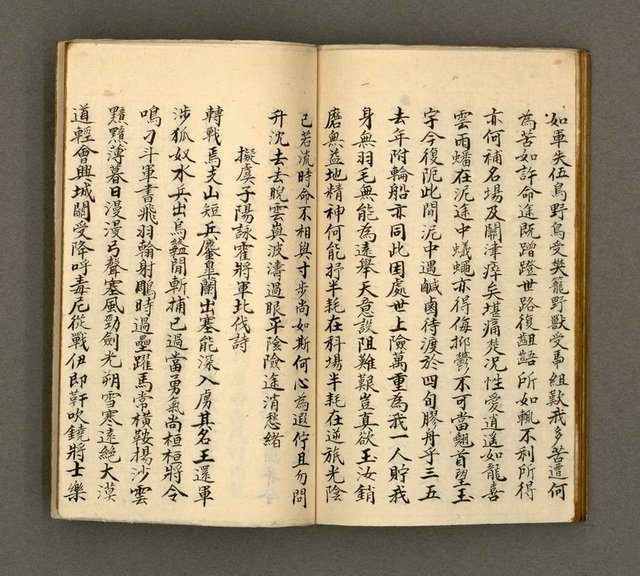 如軍失伍鳥野鳥受樊籠野獸受馽組歎我多苦遭何
為苦如許命途既蹭蹬世路復齟齬所如輒不利所得
亦何補名場及關津瘁矣堪痛楚况性愛逍遙如龍喜
雲雨蟠在泥途中蟻蠅亦得侮抑鬱不可當翹首望玉
宇今復阨此間泥中遇鹹鹵待渡於四旬膠舟乎三五
去年附輪船亦同此困處世上險萬重為我一人貯我
身無羽毛無能為遠舉天意設阻難艱豈真欲玉汝銷
磨無益地精神何能抒半耗在科場半耗在逆旅光陰
已若流時命不相與寸步尚如斯何心為遐佇且勿問
升沈去去睨雲與波濤過眼平險險途消愁緒
擬虞子陽詠霍將軍北伐詩
轉戰馬支山短兵鏖皐蘭出塞能深入虜其名王還軍
涉狐奴水兵出烏盭間斬捕已過當勇氣尚桓桓將令
鳴刁斗軍書飛羽翰射鵰時過壘躍馬常橫鞍揚沙雲
黯黯薄暮日漫漫弓聲塞風勁劍光朔雪寒遠絕大漠
道輕會興城闕受降呼毒尼從戰伊即靬吹鐃將士樂